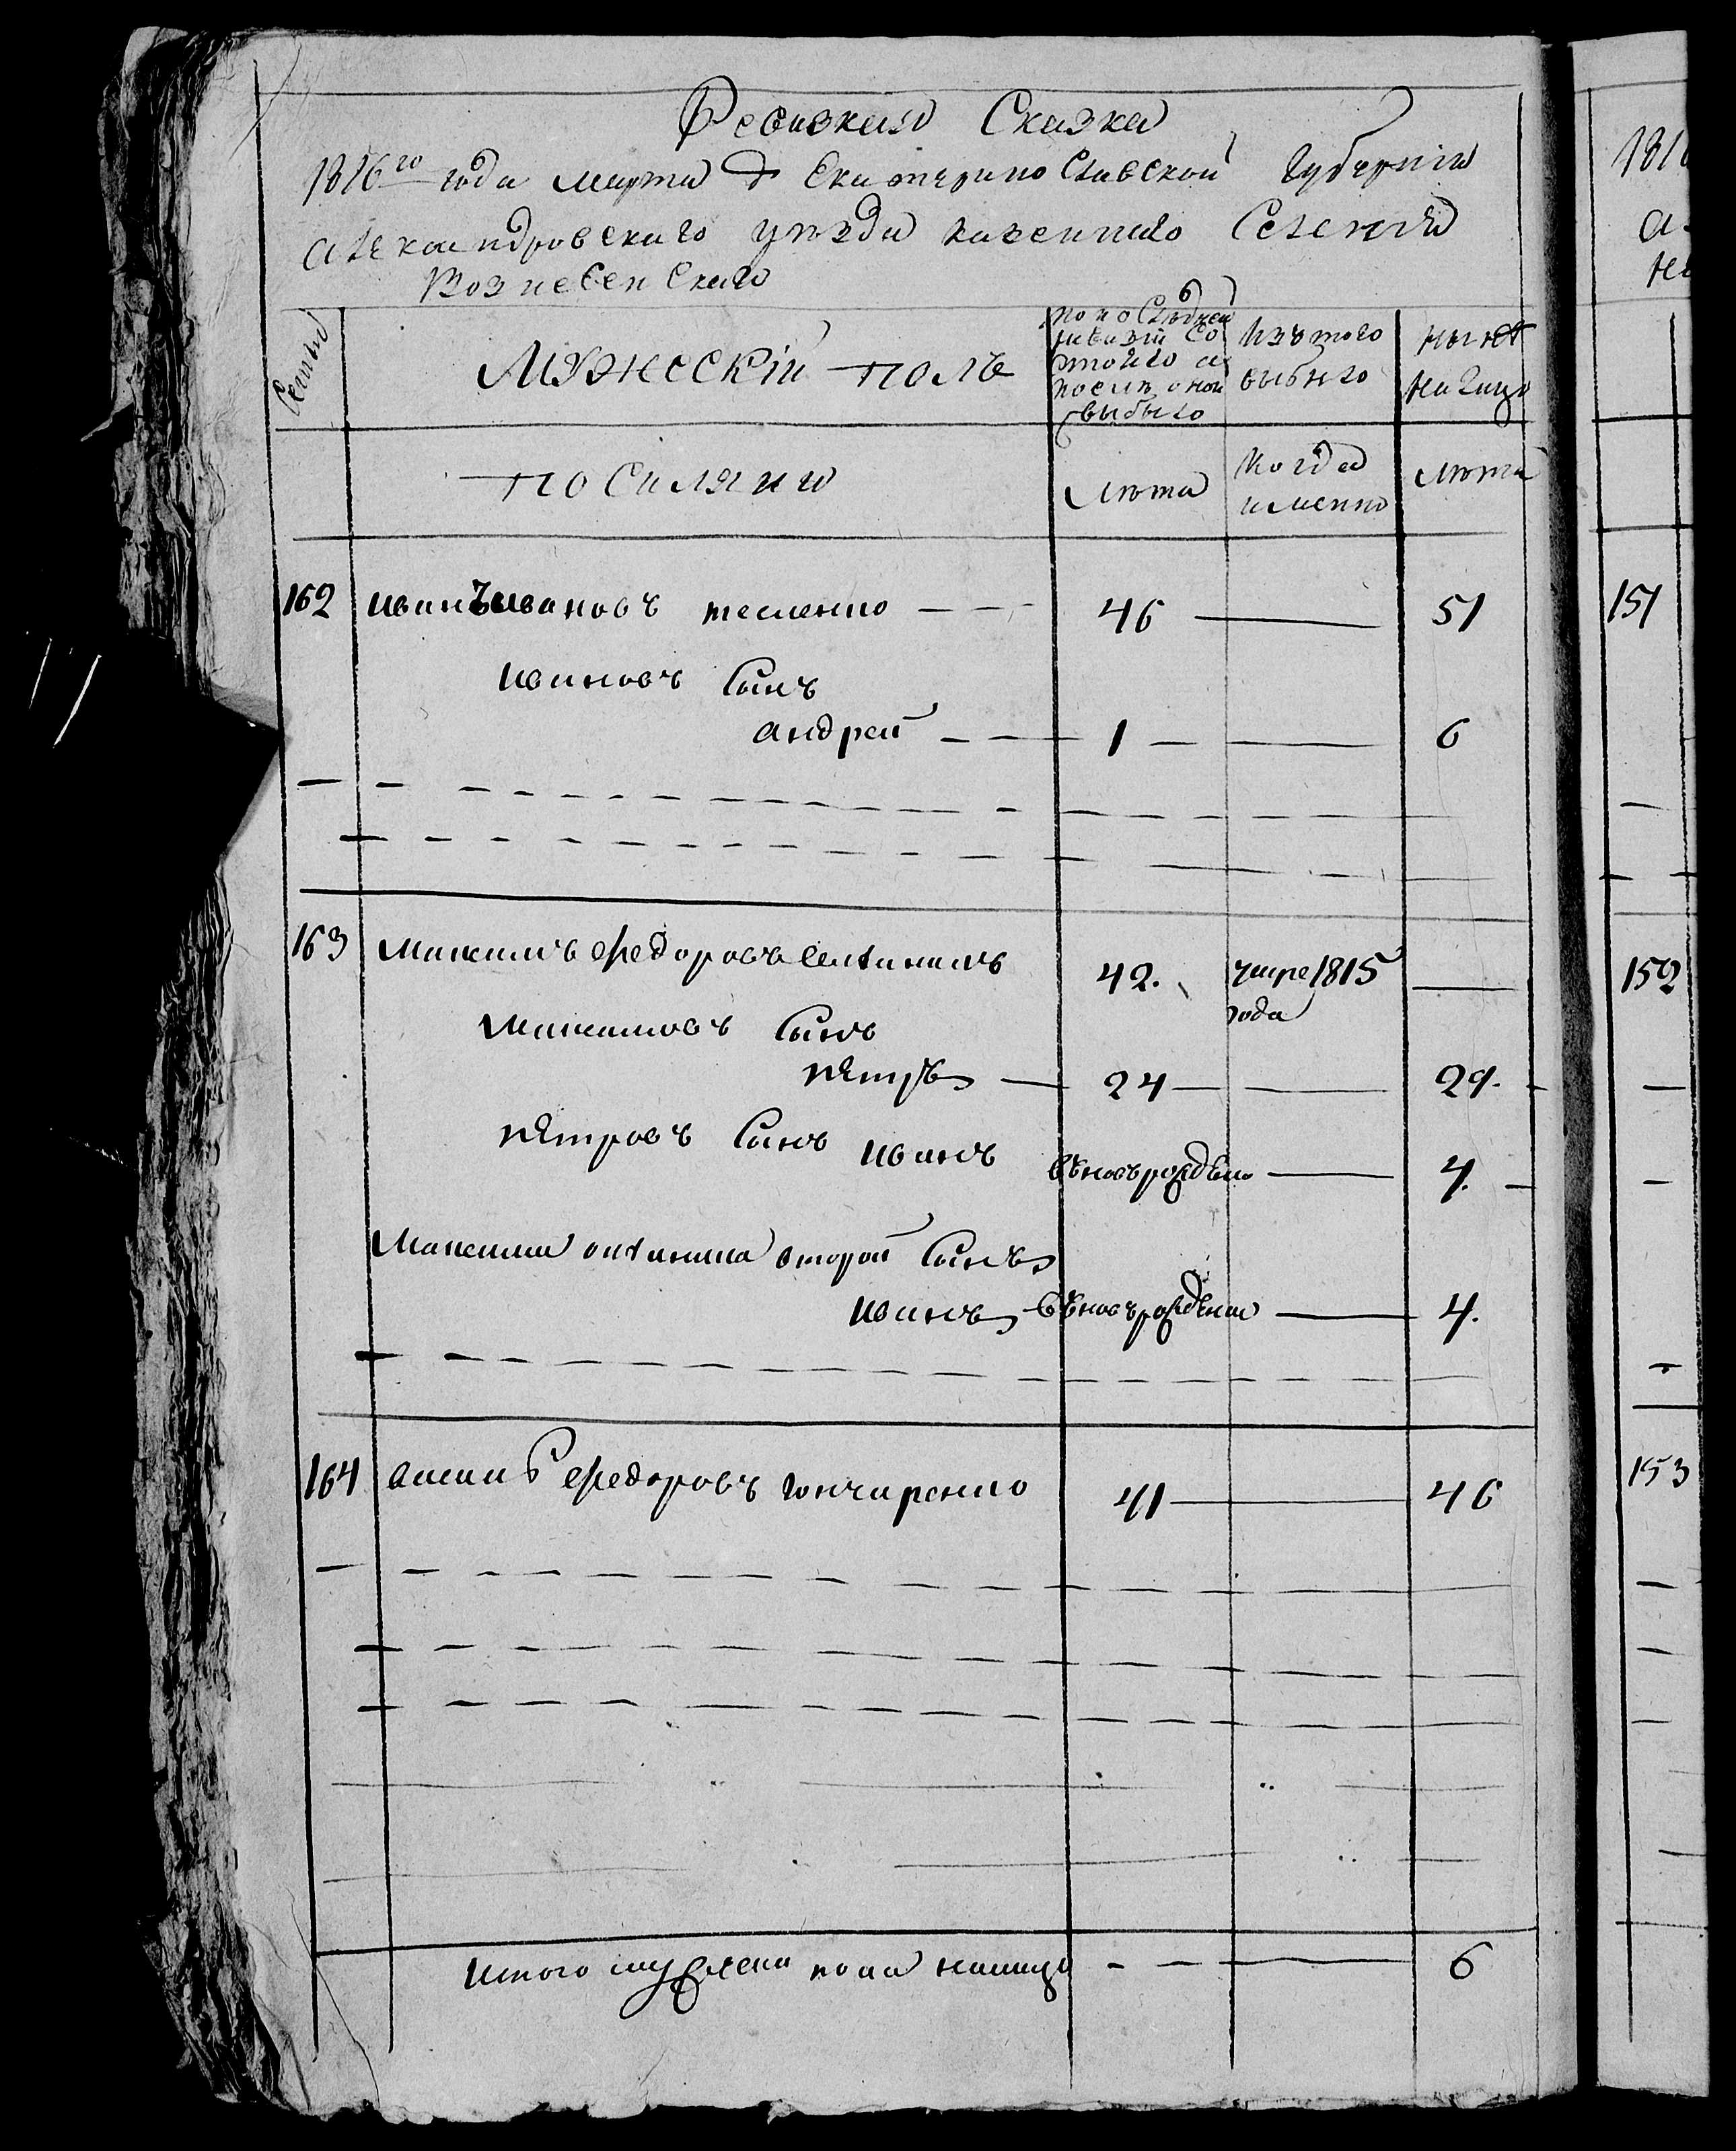 Ревизкая Сказка
1816го года марта д Екатеринославской Губернии
Александровского уезда казеннаго Селения
Вознесенскаго
Семьи
Мужеский полъ
по последней ревизии состояло и после оной выбыло
Изъ того выбыло
ныне на лицо
лета
Когда именно
лета
162 иванъ ивановъ тесленко 46 51
ивановъ Сынъ
андрей 1 6
163 Максимъ федоровъ 42. умре 1815 года
Максимовъ Сынъ
петръ 24 29.
петровъ Сынъ иванъ вновьрожденъ 4.
Максима второй Сынъ
иванъ вновьрожденъ 4.
164 федоровъ гончаренко 41 46
Итого мужеска пола налицо 6
181
а
151
152
153